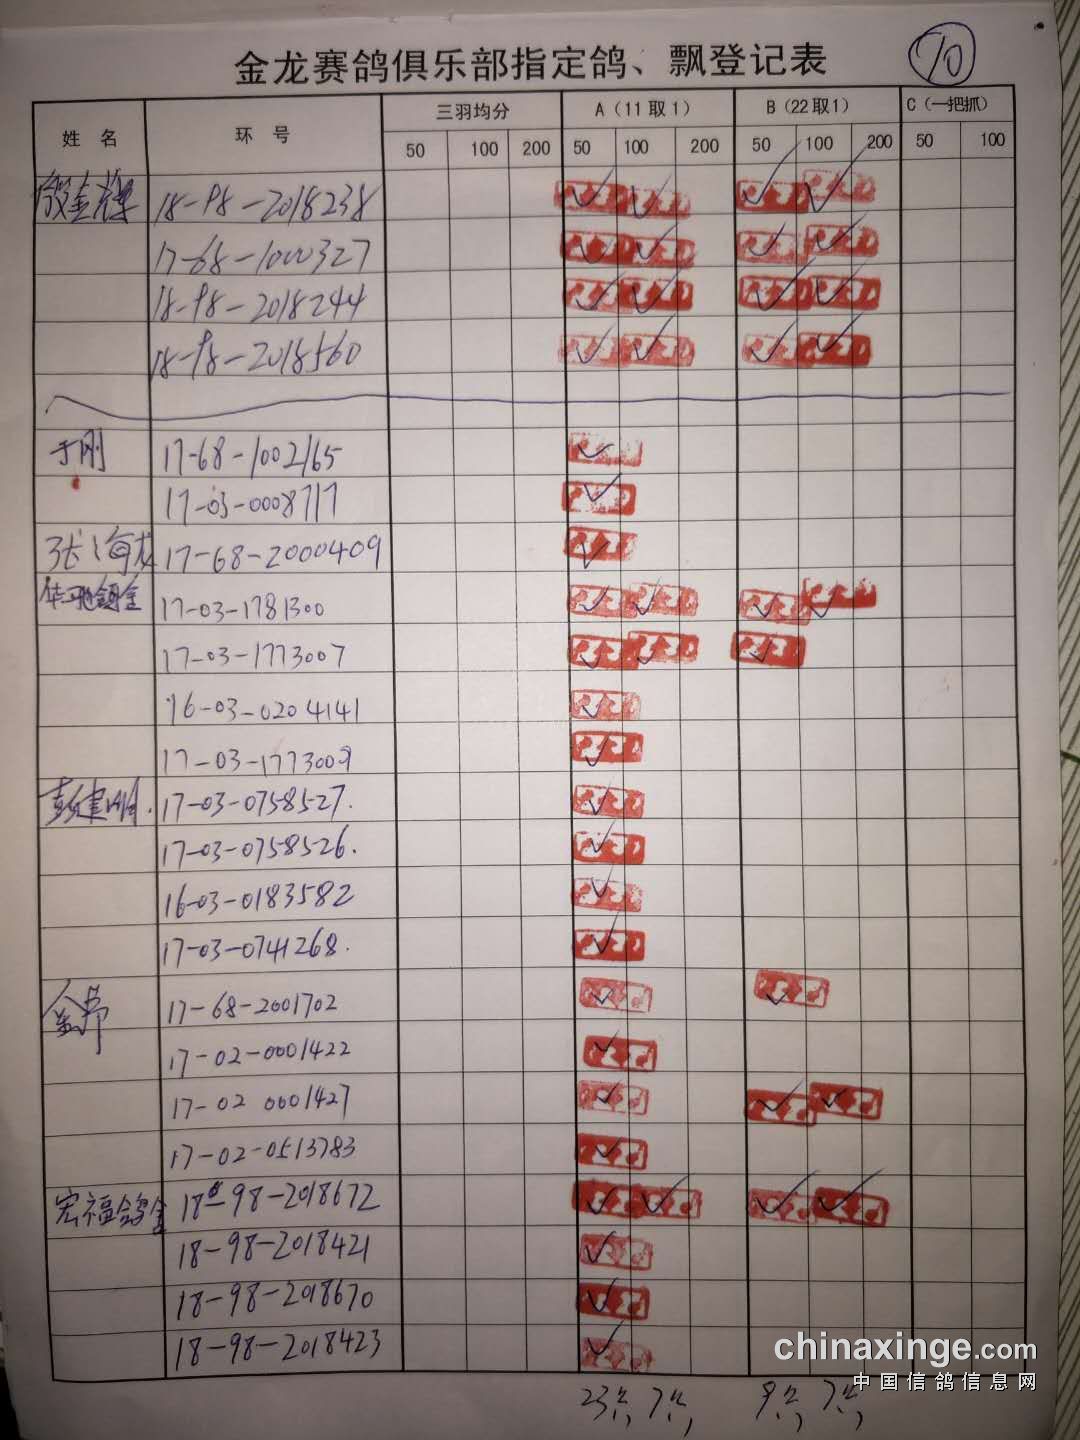 金龙赛鸽俱乐部指定鸽、飘登记表 70
姓 名 环 号 三羽均分 A（11取1） B（22取1） C（一把抓）
50 100 200 50 100 200 50 100 200 50 100
18-98-2018238
17-68-1000327
18-98-2018244
18-98-2018560
于刚 17-68-1002165
17-03-0008717
张海龙 17-68-2000409
17-03-1781300
17-03-1773007
16-03-0204141
17-03-1773009
彭建明. 17-03-0758527.
17-03-0758526.
16-03-0183582
17-03-0741268.
17-68-2001702
17-02-0001422
17-02 0001427
17-02-0513783
宏福鸽舍 18-98-2018672
18-98-2018421
18-98-2018670
18-98-2018423
23 7 9 7
chinaxinge.com
中国信鸽信息网